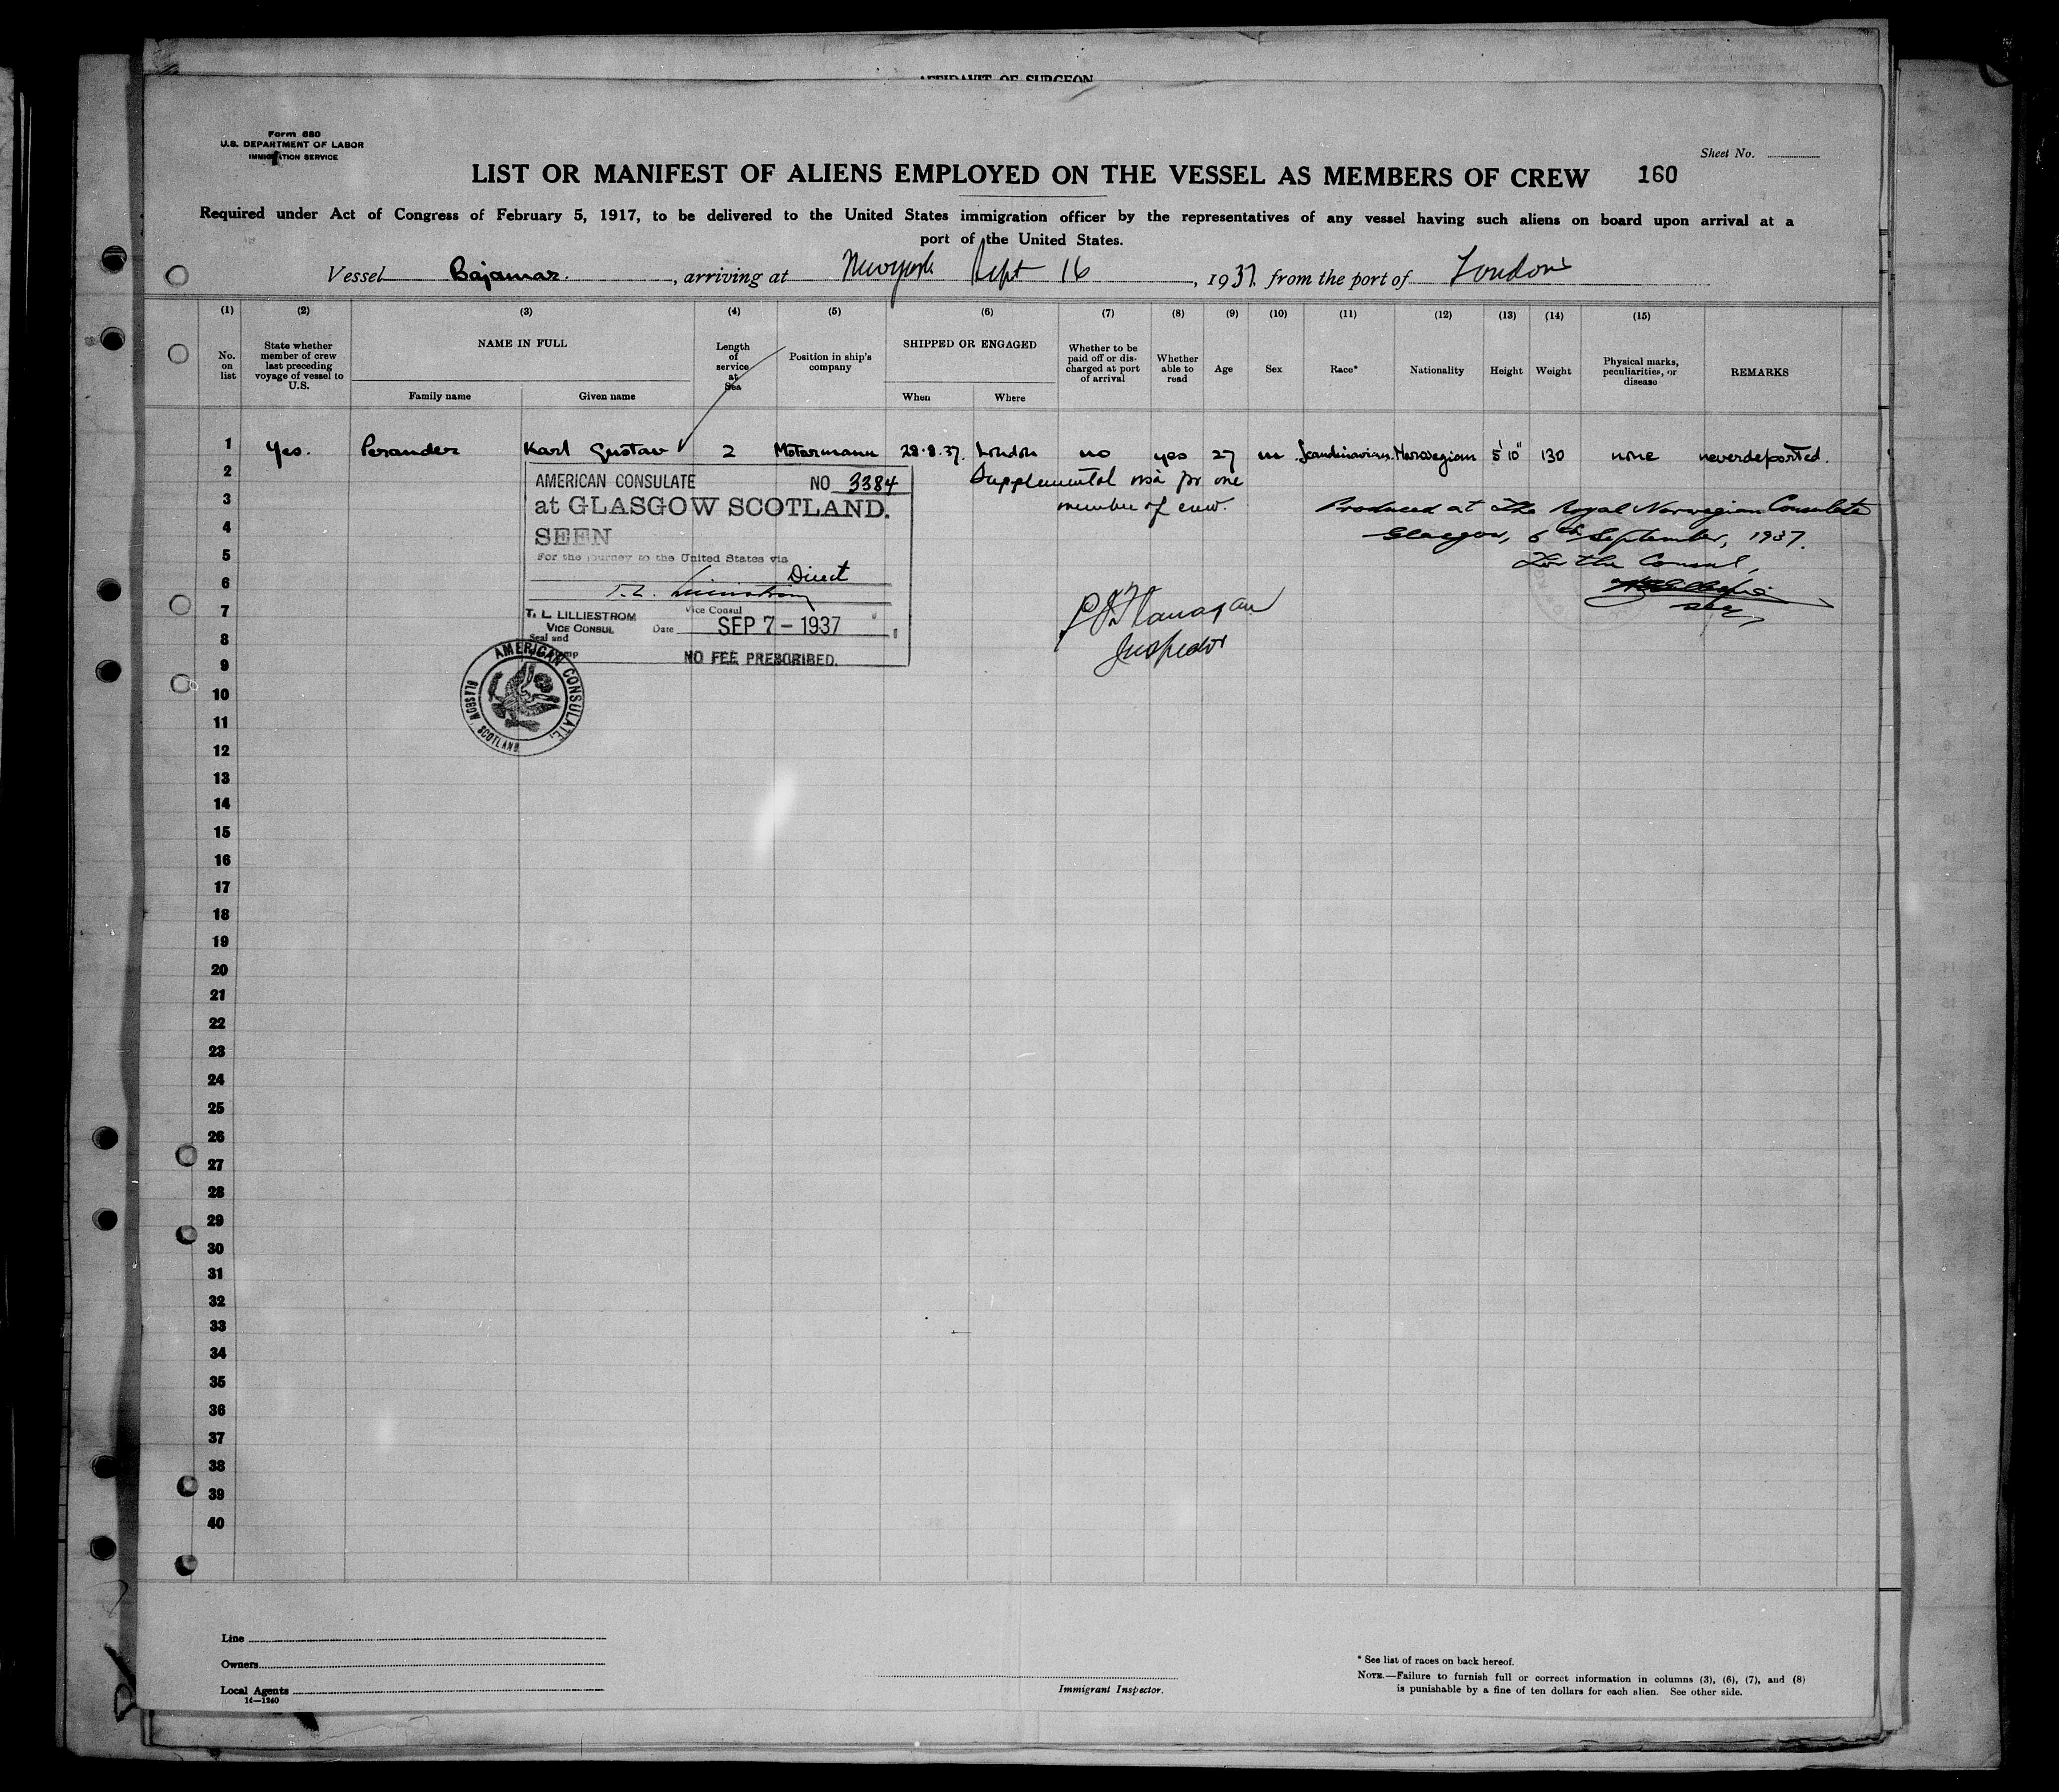 AFFIDAVIT OF SURGEON
Form 680
U.S. DEPARTMENT OF LABOR
IMMIGRATION SERVICE
Sheet No.
LIST OR MANIFEST OF ALIENS EMPLOYED ON THE VESSEL AS MEMBERS OF CREW 160
Required under Act of Congress of February 5, 1917, to be delivered to the United States immigration officer by the representatives of any vessel having such aliens on board upon arrival at a
port of the United States.
Vessel Bajamar. , arriving at Newyork Sept 16 , 1937, from the port of London
(1) (2) (3) (4) (5) (6) (7) (8) (9) (10) (11) (12) (13) (14) (15)
No. on list
State whether member of crew last preceding voyage of vessel to U.S.
NAME IN FULL
Family name Given name
Length of service at Sea
Position in ship's company
SHIPPED OR ENGAGED
When Where
Whether to be paid off or discharged at port of arrival
Whether able to read
Age
Sex
Race*
Nationality
Height
Weight
Physical marks, peculiarities, or disease
REMARKS
1 Yes. Perander Karl Gustav 2 Motormann 28.8.37. London no yes 27 m Scandinavian. Norwegian 5'10" 130 none never deported.
Supplemental visa for one
member of crew.
Produced at The Royal Norwegian Consulate
Glasgow, 6th September, 1937.
For the Consul,
Secy
AMERICAN CONSULATE NO 3384
at GLASGOW SCOTLAND.
SEEN
For the journey to the United States via
Direct
T. L. Lilliestrom
T. L. LILLIESTROM Vice Consul
VICE CONSUL Date SEP 7 - 1937
Seal and
NO FEE PRESCRIBED.
AMERICAN CONSULATE, GLASGOW, SCOTLAND
P J Flanagan
Inspector
2
3
4
5
6
7
8
9
10
11
12
13
14
15
16
17
18
19
20
21
22
23
24
25
26
27
28
29
30
31
32
33
34
35
36
37
38
39
40
Line
Owners
Local Agents
14—1240
Immigrant Inspector.
* See list of races on back hereof.
NOTE.—Failure to furnish full or correct information in columns (3), (6), (7), and (8)
is punishable by a fine of ten dollars for each alien. See other side.